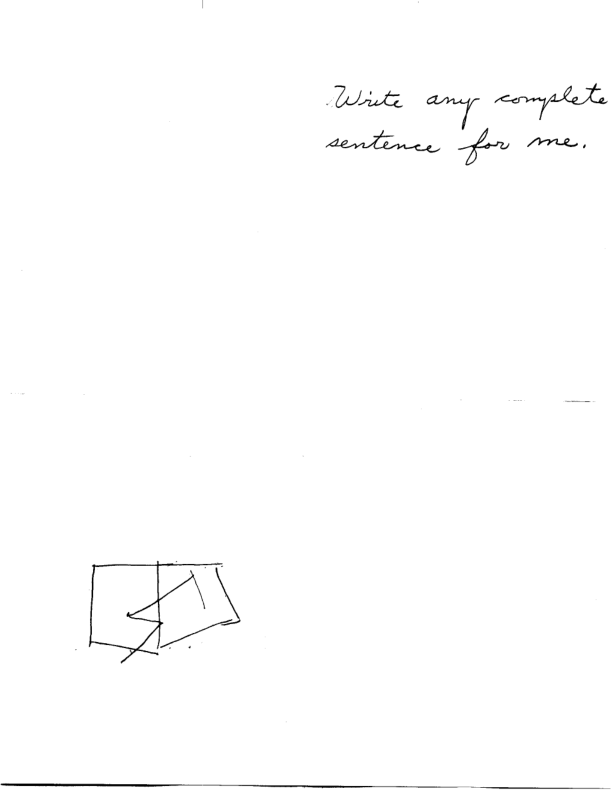 Write any complete
sentence for me.